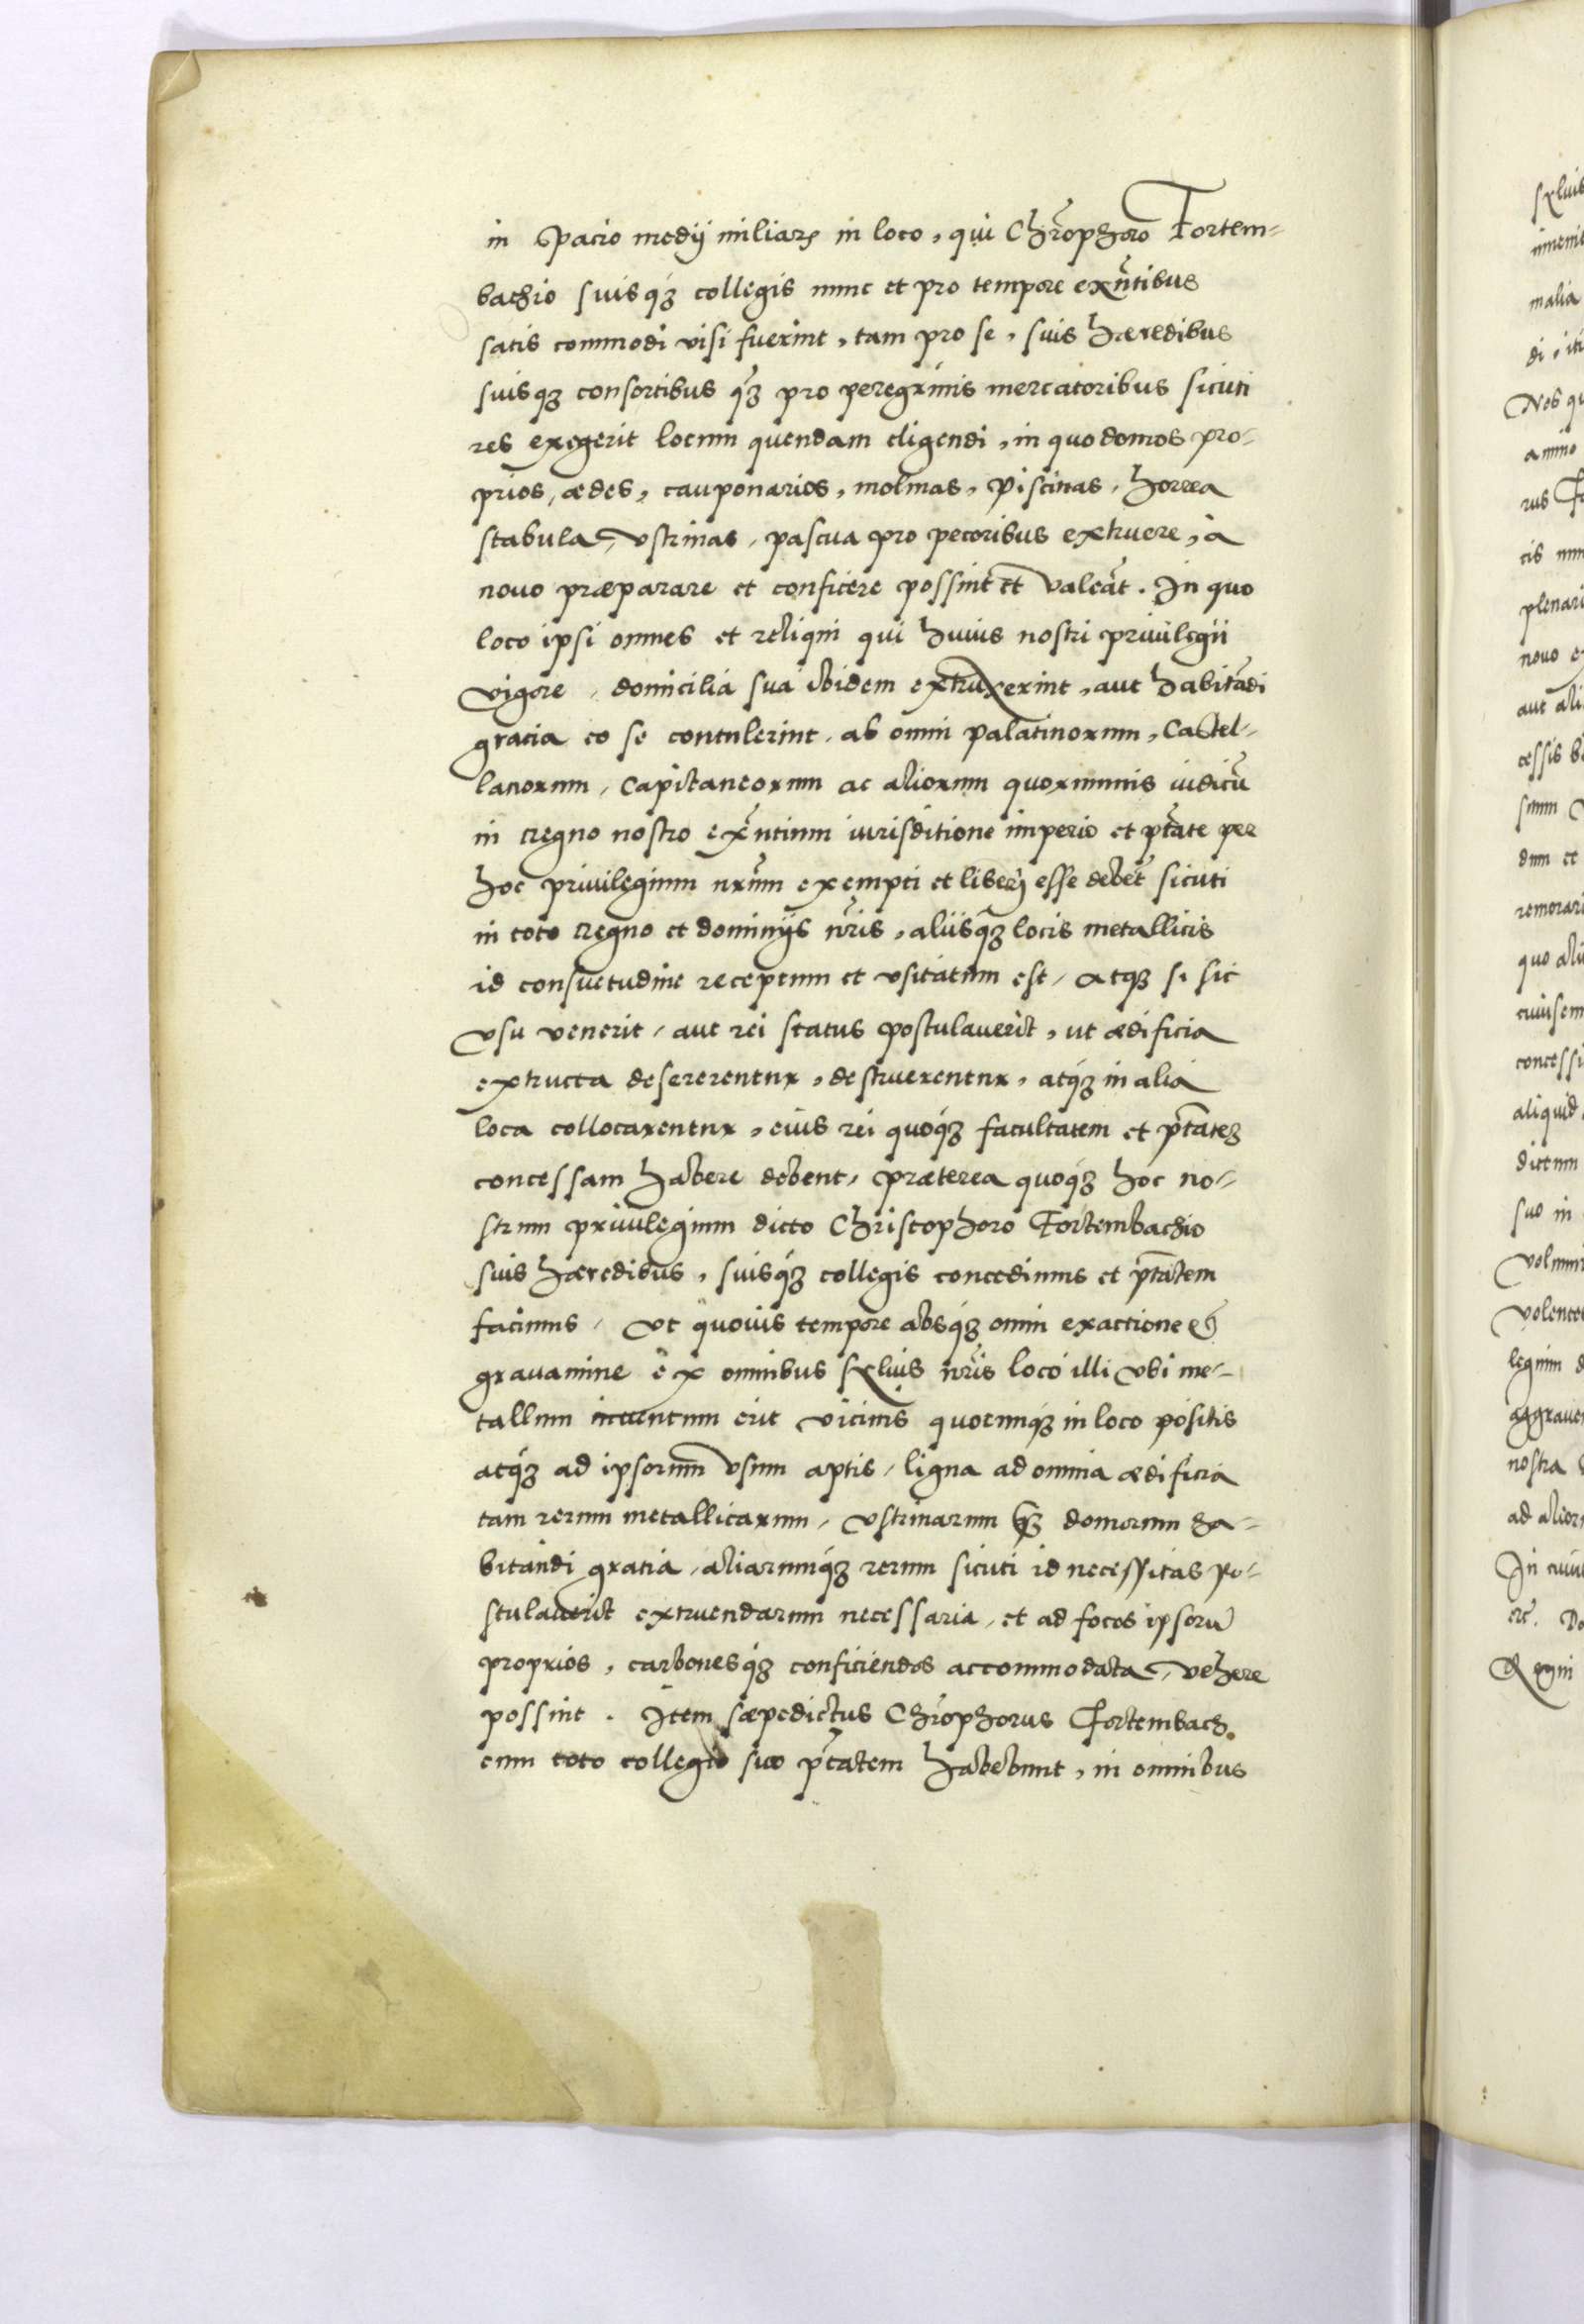 in spacio medij miliaris in loco, qui Chr̃ophoro Fortem-
bachio suisqꝫ collegis nunc et pro tempore exñtibus
satis commodi visi fuerint, tam pro se, suis hæredibus
suisqꝫ consortibus qꝫ pro peregrinis mercatoribus sicuti
res exegerit locum quendam eligendi, in quo domos pro-
prios, ædes, cauponarios, molinas, piscinas, horrea
stabula, vstrinas, pascua pro pecoribus extruere, à
nouo præparare et conficere possint et valeãt. In quo
loco ipsi omnes et reliqui qui huius nostri priuilegii
vigore, domicilia sua ibidem extruxerint, aut habitãdi
gratia eo se contulerint, ab omni Palatinorum, Castel-
lanorum, Capitaneorum ac aliorum quorumuis iudicũ
in regno nostro exñtium iurisditione imperio et ptãte per
hoc priuilegium nrũm exempti et liberi esse debẽt sicuti
in toto regno et dominijs nr̃is, aliisqꝫ locis metallicis
id consuetudine receptum et vsitatum est, atqꝫ si sic
vsu venerit, aut rei status postulauerit, ut ædificia
extructa desererentur, destruerentur, atqꝫ in alia
loca collocarentur, eius rei quoqꝫ facultatem et ptãteꝫ
concessam habere debent, præterea quoqꝫ hoc no-
strum priuilegium dicto Christophoro Fortembachio
suis hæredibus, suisqꝫ collegis concedimus et ptãtem
facimus, Vt quouis tempore absqꝫ omni exactione et
grauamine ex omnibus syluis nr̃is loco illi vbi me-
tallum inuentum erit vicinis quocunqꝫ in loco positis
atqꝫ ad ipsorum vsum aptis, ligna ad omnia ædificia
tam rerum metallicarum, vstrinarum qꝫ domorum ha-
bitandi gratia, aliarumqꝫ rerum sicuti id necessitas po-
stulauerit extruendarum necessaria, et ad focos ipsorũ
proprios, carbonesqꝫ conficiendos accommodata, vehere
possint. Item sæpedictus Chr̃ophorus Fortembach.
cum toto collegio suo ptãtem habebunt, in omnibus